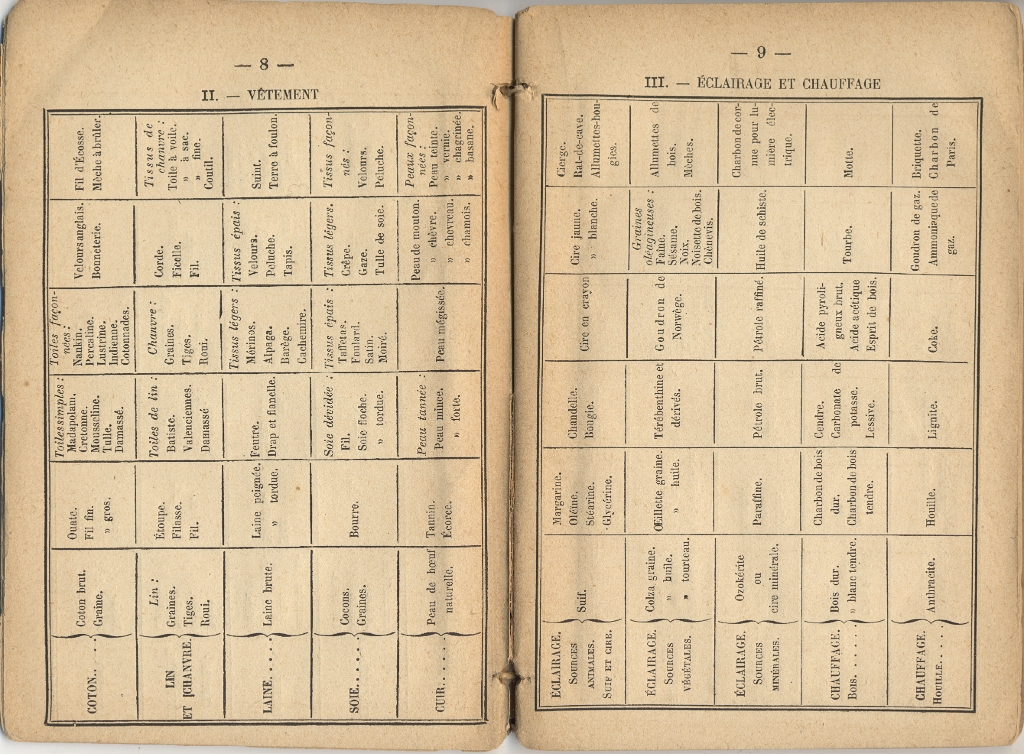 — 8 —
II. — VÊTEMENT
COTON.. . . :
Coton brut.
Graine.
Ouate.
Fil fin.
» gros.
Toiles simples :
Madapolam.
Cretonne.
Mousseline.
Tulle.
Damassé.
Toiles façon-
nées :
Nankin.
Percaline.
Lustrine.
Indienne.
Cotonnades.
Velours anglais.
Bonneterie.
Fil d'Écosse.
Mèche à brûler.
LIN
ET CHANVRE.
Lin :
Graines.
Tiges.
Roui.
Étoupe.
Filasse.
Fil.
Toiles de lin :
Batiste.
Valenciennes.
Damassé
Chanvre :
Graines.
Tiges.
Roui.
Corde.
Ficelle.
Fil.
Tissus de
chanvre :
Toile à voile.
» à sac.
» fine.
Coutil.
LAINE. . . . .
Laine brute.
Laine peignée.
» tordue.
Feutre.
Drap et flanelle.
Tissus légers :
Mérinos.
Alpaga.
Barège.
Cachemire.
Tissus épais :
Velours.
Peluche.
Tapis.
Suint.
Terre à foulon.
SOIE. . . . . .
Cocons.
Graines.
Bourre.
Soie dévidée :
Fil.
Soie floche.
» tordue.
Tissus épais :
Taffetas.
Foulard.
Satin.
Moiré.
Tissus légers.
Crêpe.
Gaze.
Tulle de soie.
Tissus façon-
nés :
Velours.
Peluche.
CUIR. . . . . .
Peau de bœuf
naturelle.
Tannin.
Écorce.
Peau tannée :
Peau mince.
» forte.
Peau mégissée.
Peau de mouton.
» chèvre.
» chevreau.
» chamois.
Peaux façon-
nées :
Peau teinte.
» vernie.
» chagrinée.
» basane.
— 9 —
III. — ÉCLAIRAGE ET CHAUFFAGE
ÉCLAIRAGE.
SOURCES
ANIMALES.
SUIF ET CIRE.
Suif.
Margarine.
Oléine.
Stéarine.
Glycérine.
Chandelle.
Bougie.
Cire en crayon
Cire jaune.
» blanche.
Cierge.
Rat-de-cave.
Allumettes-bou-
gies.
ÉCLAIRAGE.
SOURCES
VÉGÉTALES.
Colza graine.
» huile.
» tourteau.
Œillette graine.
» huile.
Térébenthine et
dérivés.
Goudron de
Norwège.
Graines
oléagineuses :
Faîne.
Sésame.
Noix.
Noisette de bois.
Chènevis.
Allumettes de
bois.
Mèches.
ÉCLAIRAGE.
SOURCES
MINÉRALES.
Ozokérite
ou
cire minérale.
Paraffine.
Pétrole brut.
Pétrole raffiné.
Huile de schiste.
Charbon de cor-
nue pour lu-
mière élec-
trique.
CHAUFFAGE.
BOIS. . . . . .
Bois dur.
» blanc tendre.
Charbon de bois
dur.
Charbon de bois
tendre.
Cendre.
Carbonate de
potasse.
Lessive.
Acide pyroli-
gneux brut.
Acide acétique
Esprit de bois.
Tourbe.
Motte.
CHAUFFAGE.
HOUILLE. . . . .
Anthracite.
Houille.
Lignite.
Coke.
Goudron de gaz.
Ammoniaque de
gaz.
Briquette.
Charbon de
Paris.